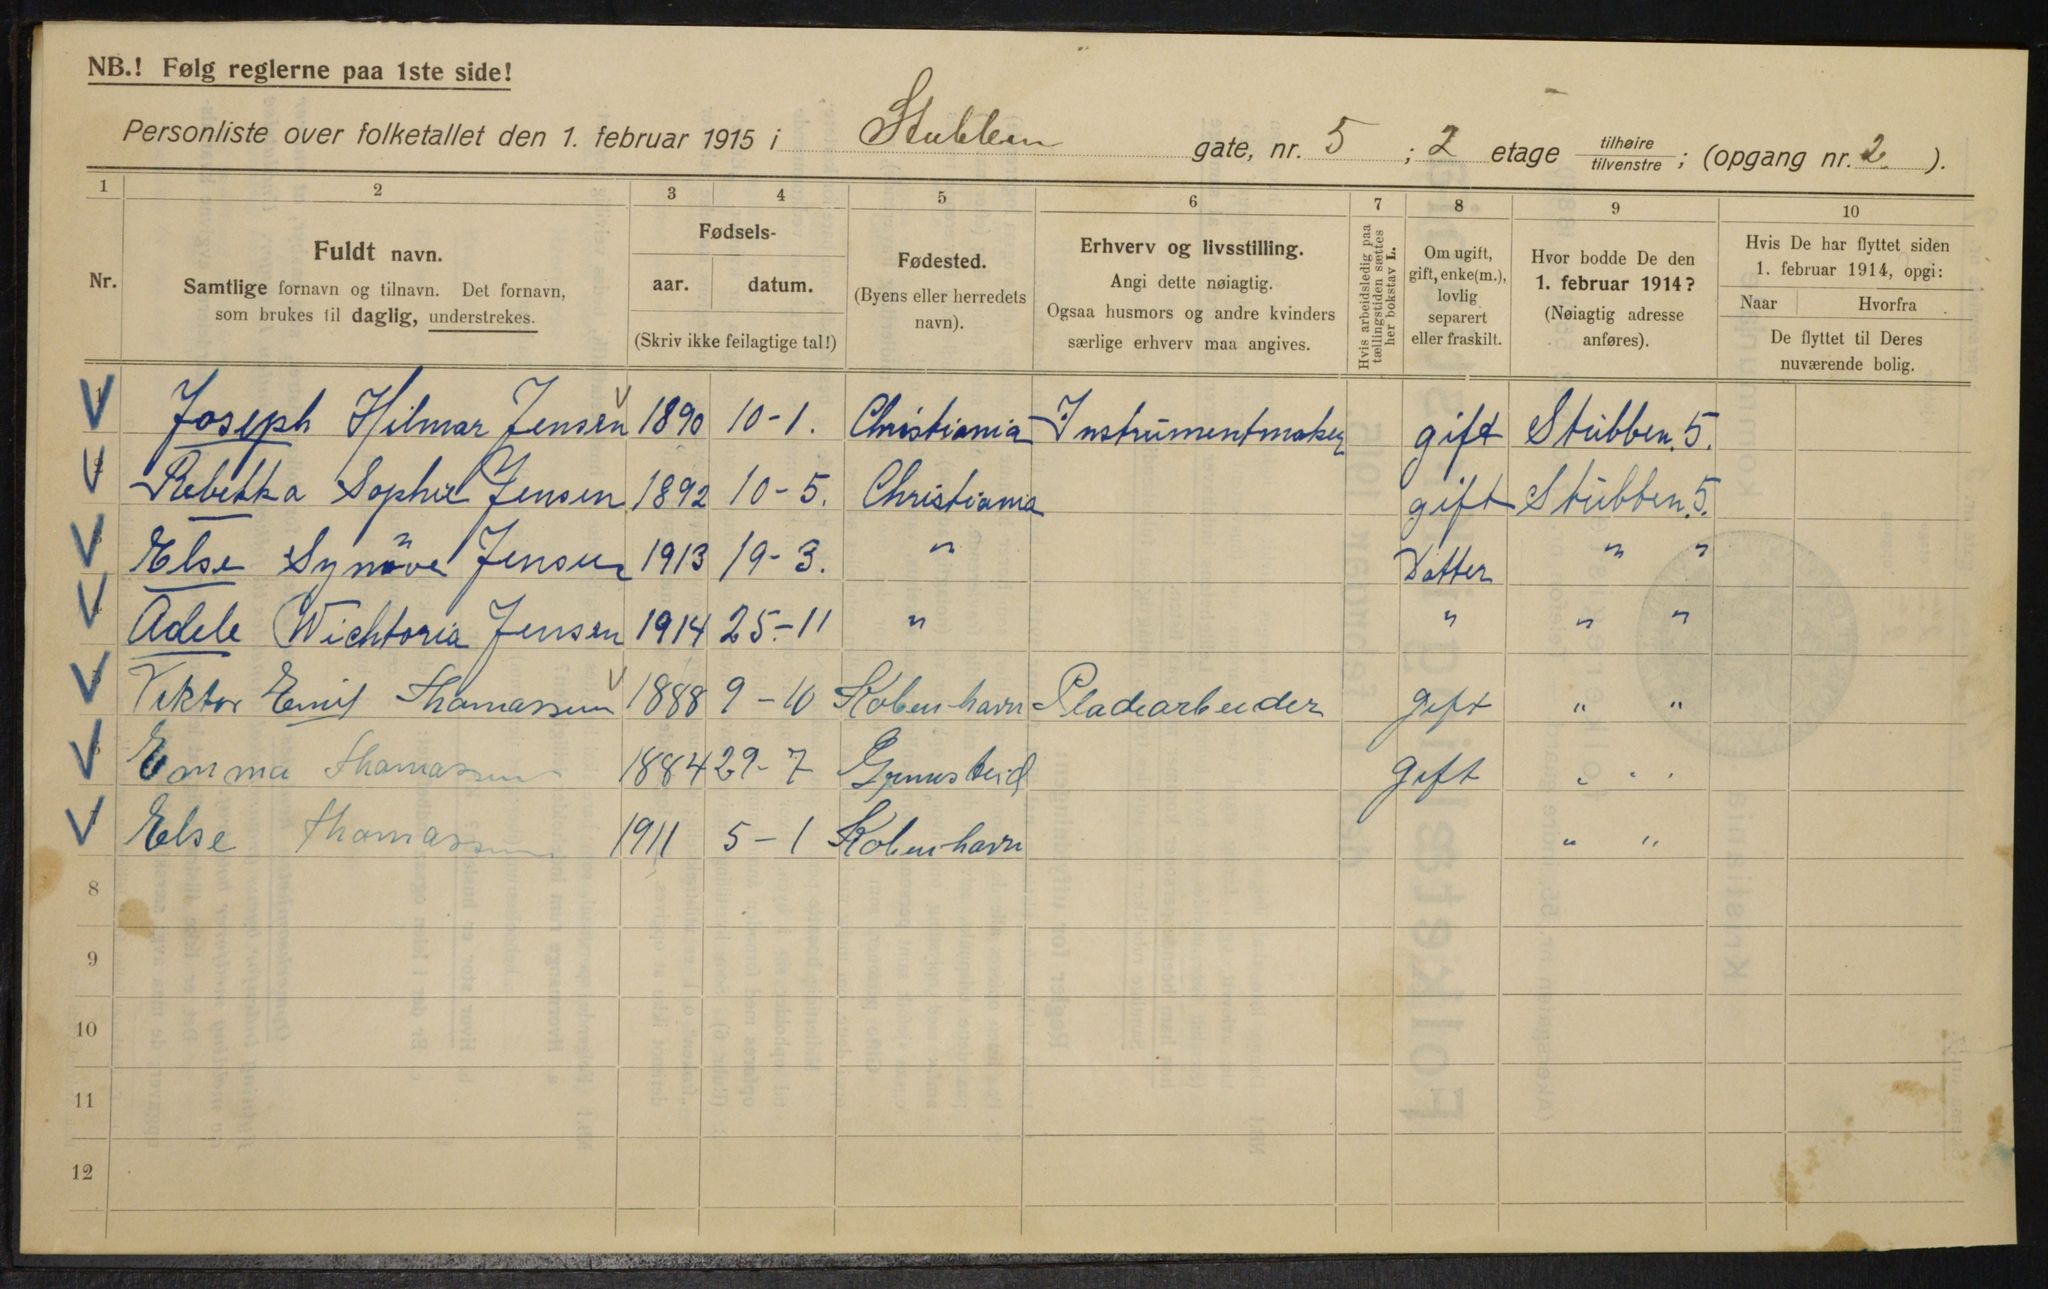 NB.! Følg reglerne paa 1ste side!
Personliste over folketallet den 1. februar 1915 i Stubben gate, nr. 5 ; 2 etage tilhøire tilvenstre ; (opgang nr. 2 ).
1 2 3 4 5 6 7 8 9 10
Nr.
Fuldt navn.
Samtlige fornavn og tilnavn. Det fornavn,
som brukes til daglig, understrekes.
Fødsels-
aar. datum.
(Skriv ikke feilagtige tal!)
Fødested.
(Byens eller herredets
navn).
Erhverv og livsstilling.
Angi dette nøiagtig.
Ogsaa husmors og andre kvinders
særlige erhverv maa angives.
Hvis arbeidsledig paa
tællingstiden sættes
her bokstav L.
Om ugift,
gift, enke(m.),
lovlig
separert
eller fraskilt.
Hvor bodde De den
1. februar 1914?
(Nøiagtig adresse
anføres).
Hvis De har flyttet siden
1. februar 1914, opgi:
Naar Hvorfra
De flyttet til Deres
nuværende bolig.
Joseph Hilmar Jensen 1890 10-1. Christiania Instrumentmaker gift Stubben. 5.
Rebekka Sophie Jensen 1892 10-5. Christiania gift Stubben. 5.
Else Synøve Jensen 1913 19-3. " Datter " "
Adele Wichtoria Jensen 1914 25.-11 " " " "
Viktor Emil Thomassen 1888 9-10 Kobenhavn Pladearbeider gift " "
Emma Thomassen 1884 29-7 gift " "
Else Thomassen 1911 5-1 Kobenhavn " "
8
9
10
11
12